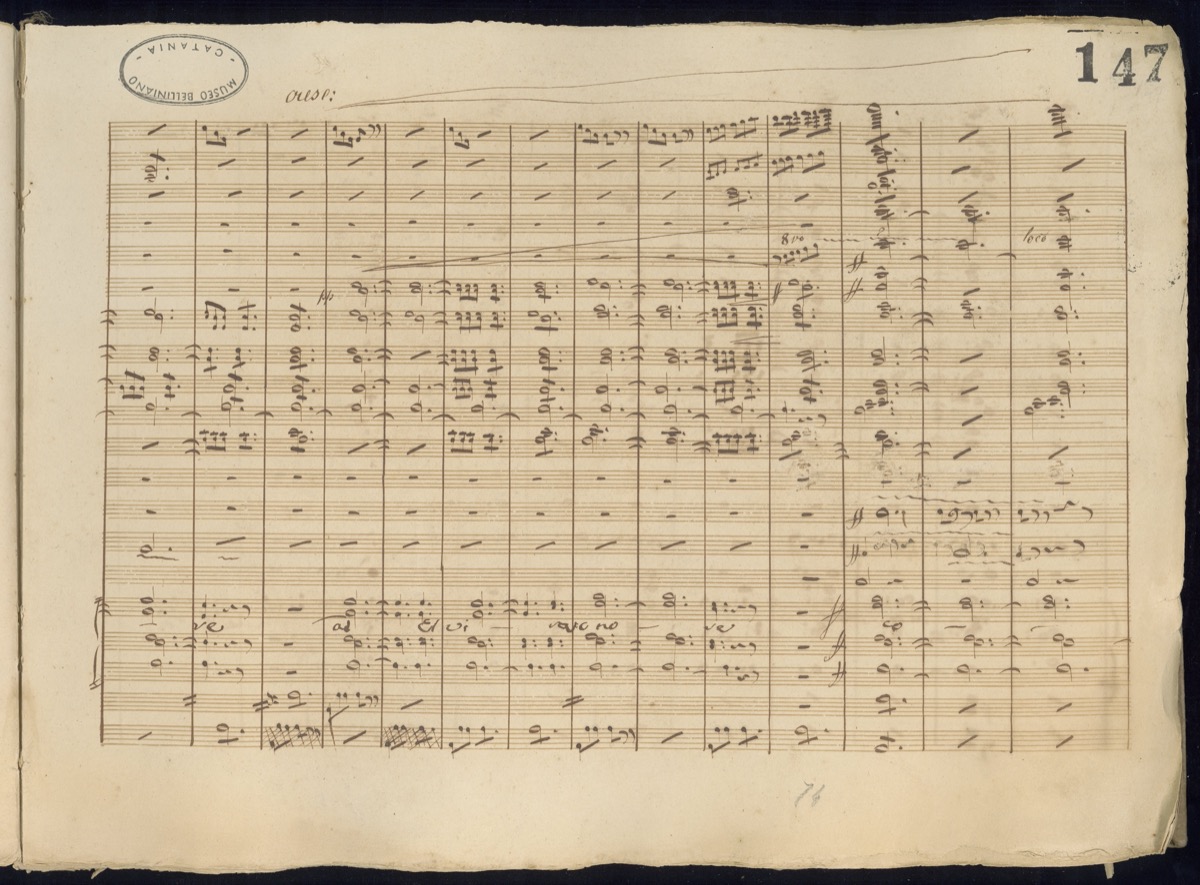 MUSEO BELLINIANO
- CATANIA -
147
cresc:
8va
loco
pp
ve ad El vi no ve
74